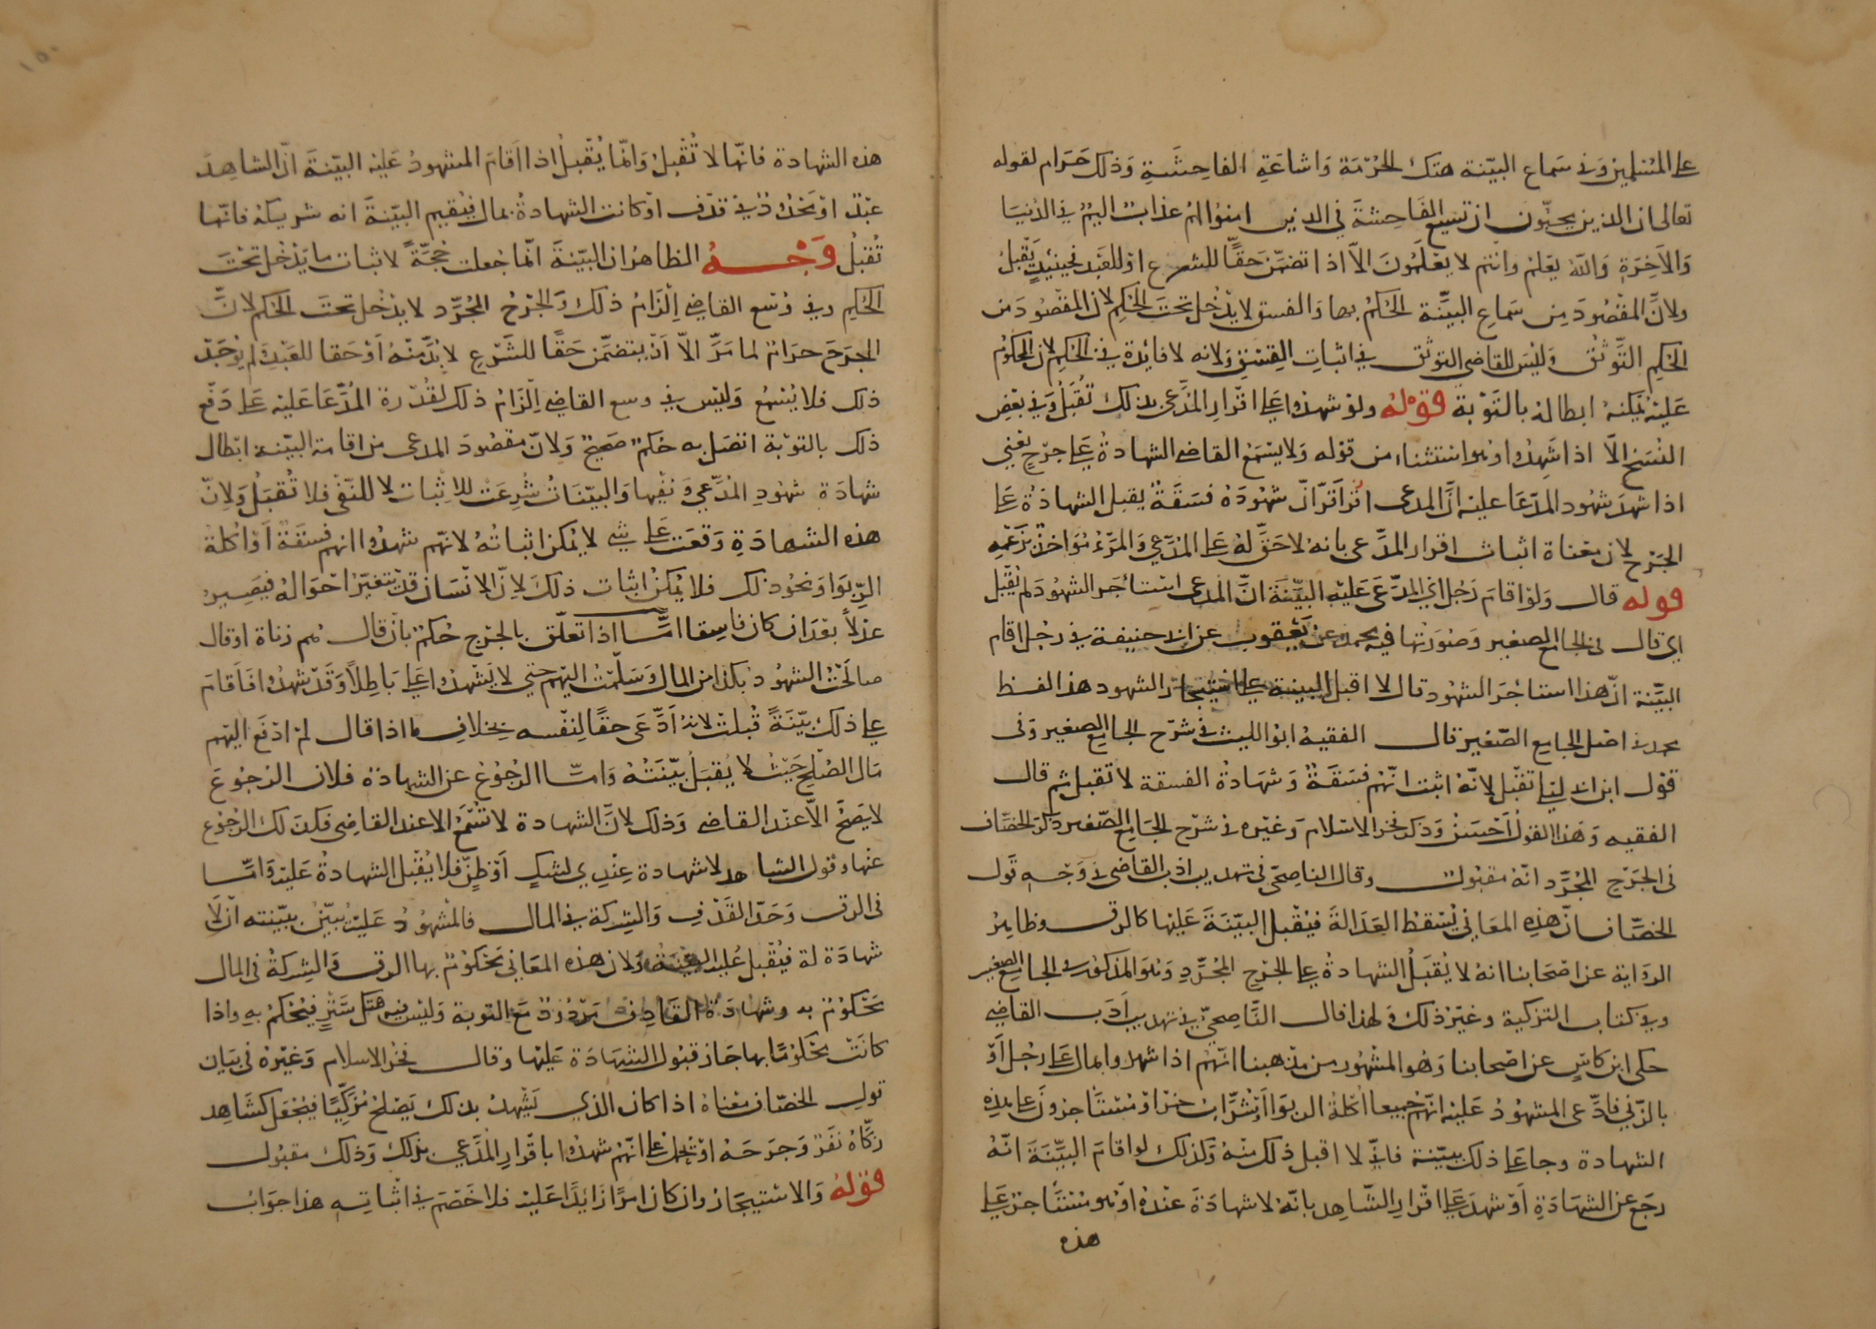 على المسلمين وفي سماع البينة هتك الحرمة واشاعة الفاحشة وذلك حرام لقوله
تعالى ان الذين يحبّون ان تشيع الفاحشة في الذين امنوا لهم عذاب اليم في الدنيا
والآخرة والله يعلم وانتم لا يعلمون الّا اذا تضمّن حقّا للشرع او للعبد فحينئذٍ تقبل
ولانّ المقصود من سماع البيّنة الحكم بها والفسق لا يدخل تحت الحكم لان المقصود من
الحكم التوثق وليس للقاضي التوثق في اثبات الفسق ولانه لا فائدة في الحكم لان المحكوم
عليه يمكنه ابطاله بالتوبة قوله ولو شهدوا على اقرار المدّعي بذلك تقبل وفي بعض
النسخ الّا اذا شهدوا وهو استثناء من قوله ولا يسمع القاضي الشهادة على جرح يعني
اذا شهد شهود المدّعا عليه انّ المدعي اقرّ انّ شهوده فسقة يقبل الشهادة على
الجرح لان معناه اثبات اقرار المدّعي بانه لا حقّ له على المدّعي والمرء مواخذ بزعمه
قوله قال ولو اقام رجل اي المدّعى عليه البيّنة انّ المدعي استاجر الشهود لم يقبل
اي قال في الجامع الصغير وصورتها فيه محمد عن يعقوب عن ابي حنيفة في رجل اقام
البيّنة انّ هذا استاجر الشهود قال لا اقبل البينة على استيجار الشهود هذا لفظ
محمد في اصل الجامع الصّغير قال الفقيه ابو الليث في شرح الجامع الصغير وفي
قول ابن ابي ليلى تقبل لانّه اثبت انّهم فسقة وشهادة الفسقة لا تقبل ثم قال
الفقيه وهذا القول احسن وذكر فخر الاسلام وغيره في شرح الجامع الصّغير ذكر الخصّاف
في الجرح المجرّد انّه مقبول وقال الناصحي في تهذيب ادب القاضي في وجه قول
الخصّاف انّ هذه المعاني تسقط العدالة فيقبل البيّنة عليها كالرق وظاهر
الرواية عن اصحابنا انه لا يقبل الشهادة على الجرح المجرّد وهو المذكور في الجامع الصغير
وفي كتاب التزكية وغير ذلك ولهذا قال النّاصحيّ في تهذيب ادب القاضي
حكى ابن كاس عن اصحابنا وهو المشهور من مذهبنا انهم اذا شهدوا بمال على رجل او
بالزنى فادّعى المشهود عليه انّهم جميعا اكلة الربوا او شرّاب خمر او مستاجرون على هذه
الشهادة وجا على ذلك ببيّنة فانّي لا اقبل ذلك منه وكذلك لو اقام البيّنة انّه
رجع عن الشهادة او شهد على اقرار الشاهد بانّه لا شهادة عنده او هو مستاجر على
هذه
هذه الشهادة فانّها لا تقبل وانّما يقبل اذا اقام المشهود عليه البيّنة انّ الشاهد
عبد او محدود في قذف او كانت الشهادة بمال فيقيم البيّنة انه شريكه فانّها
تقبل وجه الظاهر ان البيّنة انّما جعلت حجّة لاثبات ما يدخل تحت
الحكم وفي وسع القاضي الزام ذلك والجرح المجرّد لا يدخل تحت الحكم لانّ
الجرح حرام لما مرّ الّا ان يتضمّن حقّا للشرع لا بدّ منه او حقا للعبد لم يوجد
ذلك فلا يسمع وليس في وسع القاضي الزام ذلك لقدرة المدّعا عليه على دفع
ذلك بالتوبة اتصل به حكم صحيح ولانّ مقصود المدعي من اقامة البيّنة ابطال
شهادة شهود المدّعي ونفيها والبيّنات شرعت للاثبات لا للنفي فلا تقبل ولانّ
هذه الشهادة وقعت على شي لا يمكن اثباته لانهم شهدوا انهم فسقة او اكلة
الربوا ونحو ذلك فلا يمكن اثبات ذلك لانّ الانسان قد يتغيّر احواله فيصير
عدلاً بعد ان كان فاسقا امّا اذا تعلّق بالجرح حكم بان قال هم زناة او قال
صالحت الشهود بكذا من المال وسلّمت اليهم حتى لا يشهدوا على باطلاً وقد شهدوا فاقام
على ذلك بيّنة قبلت لانه ادّعى حقّا لنفسه بخلاف ما اذا قال لم ادفع اليهم
مال الصلح حيث لا يقبل بيّنته وامّا الرجوع عن الشهادة فلان الرجوع
لا يصحّ الّا عند القاضي وذلك لانّ الشهادة لا تسمع الا عند القاضي فكذلك الرجوع
عنها وقول الشاهد لا شهادة عندي لشك او ظنّ فلا يقبل الشهادة عليه وامّا
في الرق وحدّ القذف والشركة في المال فالمشهود عليه يبيّن ببيّنته ان لا
شهادة له فيقبل عليه البينة ولان هذه المعاني محكوم بها الرق والشركة في المال
محكوم به وشهادة القاذف مردود مع التوبة وليس فيه هتك ستر فيحكم به واذا
كانت محكومًا بها جاز قبول الشهادة عليها وقال فخر الاسلام وغيره في بيان
قول الخصّاف معناه اذا كان الذي يشهد بذلك يصلح مزكّيًا فيجعل كشاهد
زكّاه نفر وجرحه او يحمل على انّهم شهدوا باقرار المدّعي بذلك وذلك مقبول
قوله والاستيجار وان كان امرًا زايدًا عليه فلا خصم في اثباته هذا جواب